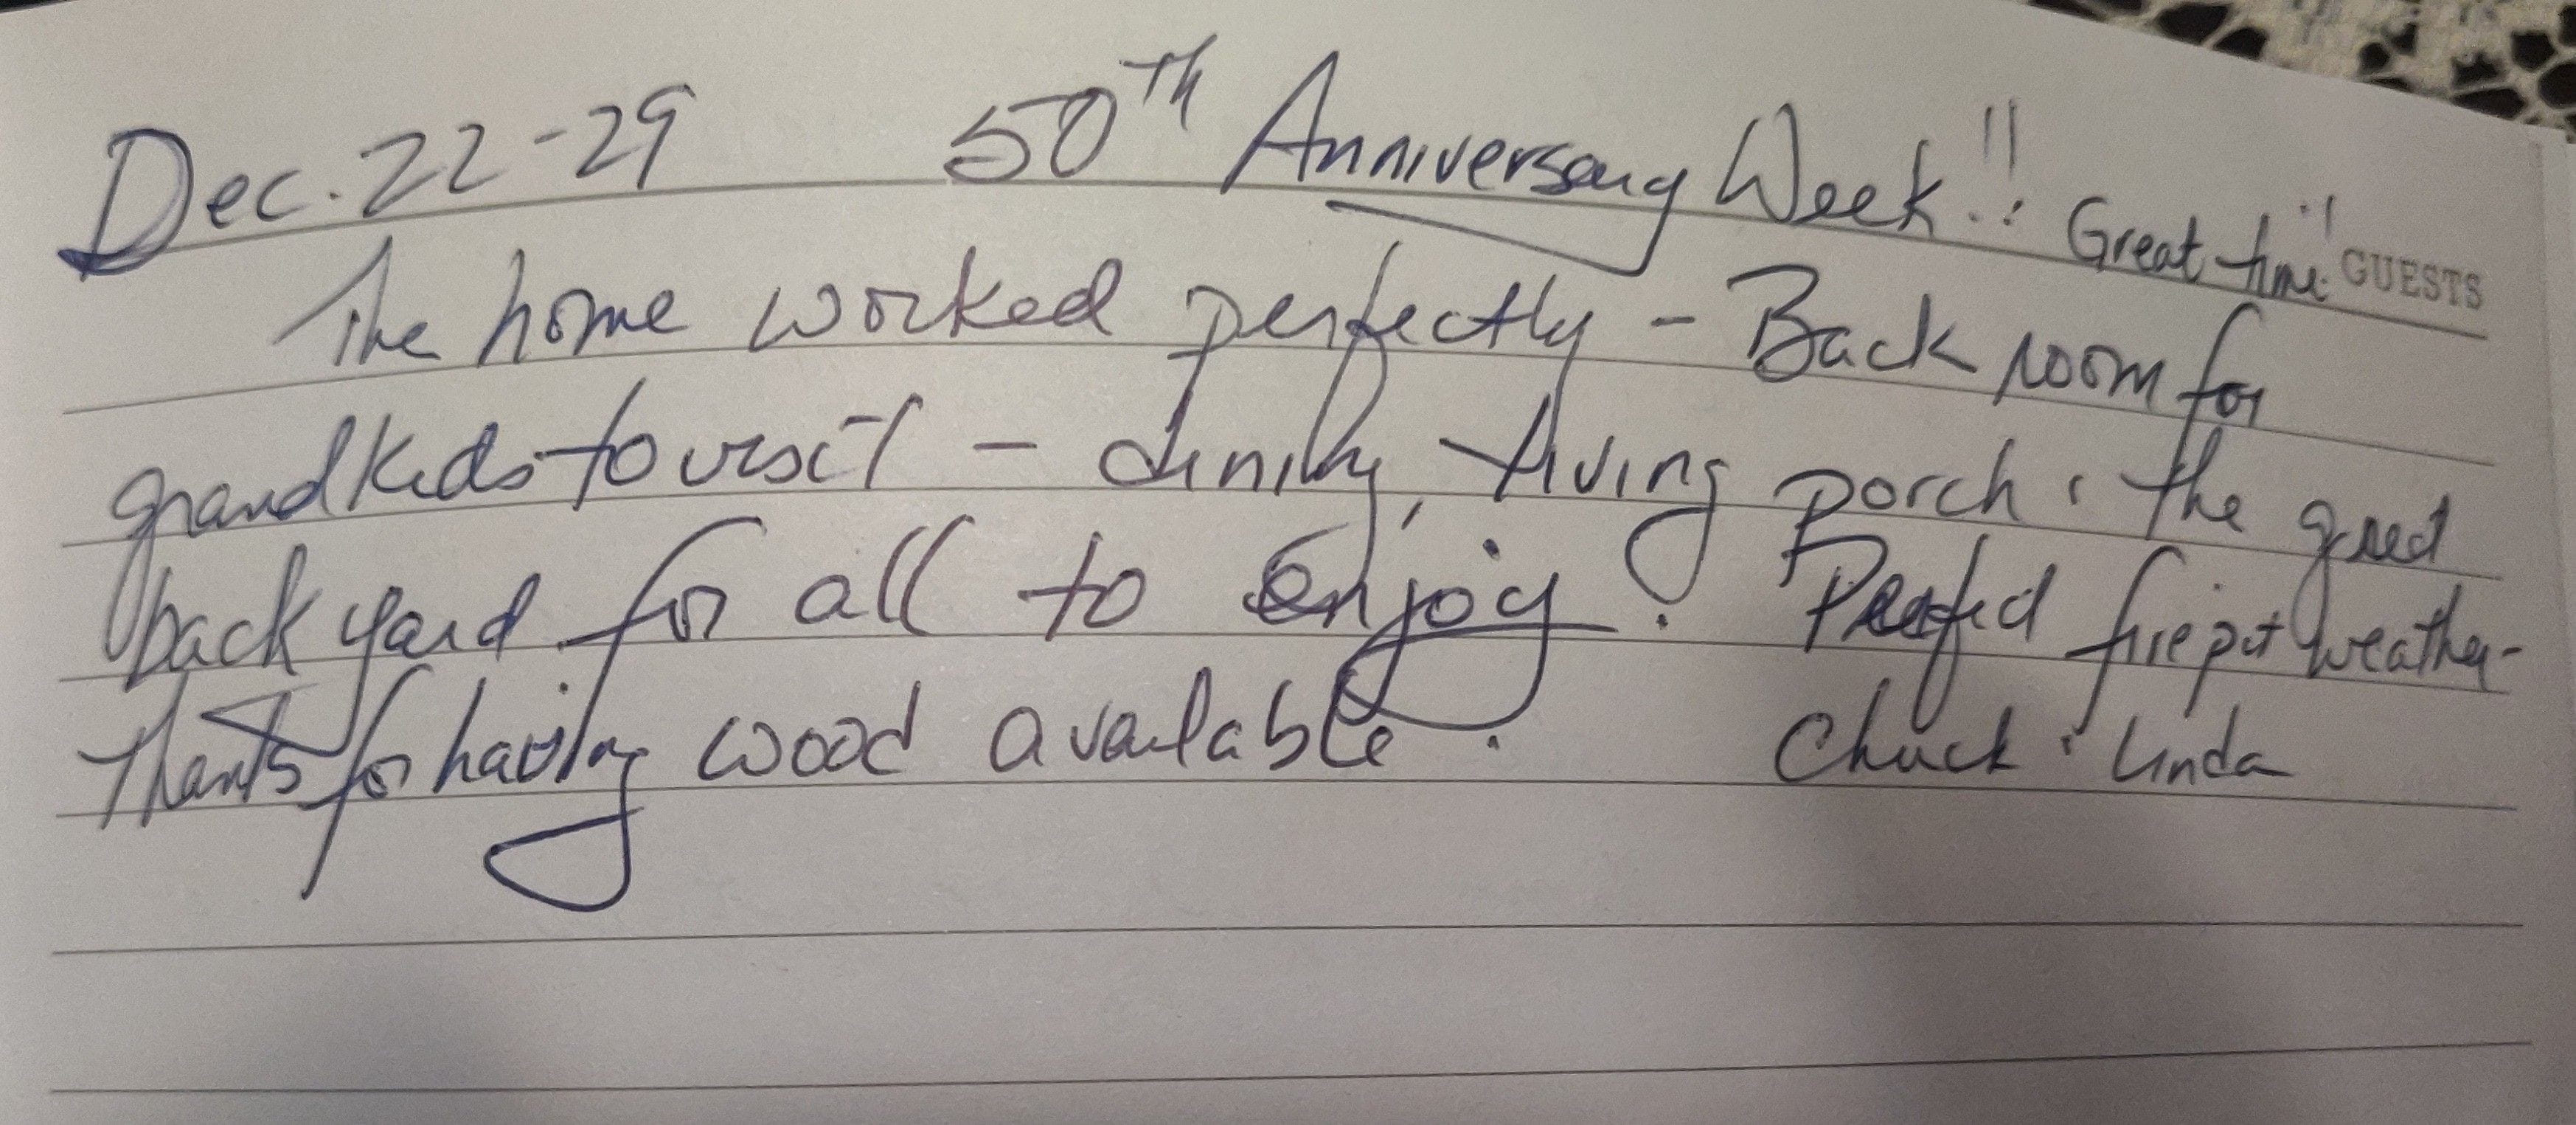 Dec. 22-29 50Th Anniversary Week!! Great time!! GUESTS
The home worked perfectly - Back room for
grandkids to visit - dining, living porch & the great
back yard for all to enjoy. Perfect firepit weather-
Thanks for having wood available. Chuck & Linda